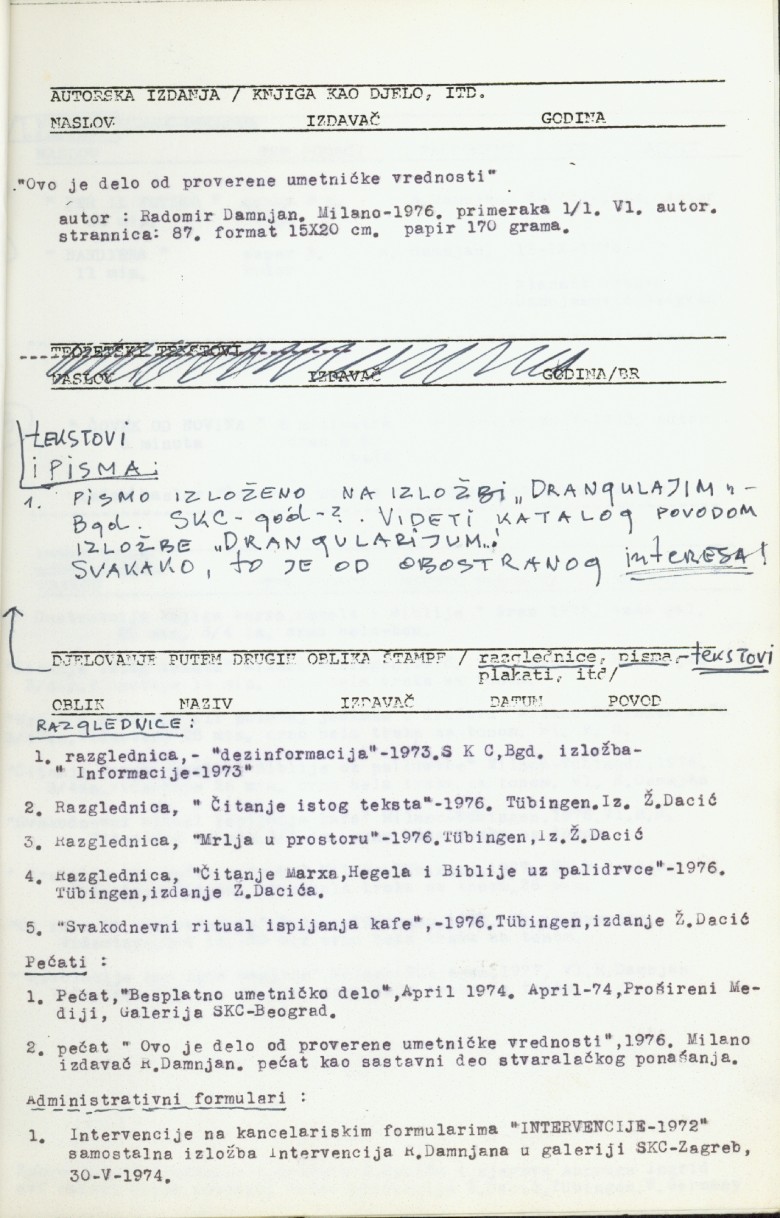 AUTORSKA IZDANJA / KNJIGA KAO DJELO, ITD.
NASLOV IZDAVAČ GODINA
"Ovo je delo od proverene umetničke vrednosti"
autor : Radomir Damnjan. Milano-1976. primeraka 1/1. Vl. autor.
strannica: 87. format 15X20 cm. papir 170 grama.
TEORETSKY TEKSTOVI
NASLOV IZDAVAČ GODINA/BR
tEKSTOVI
i PiSMA:
1. PiSMO IZLOŽENO NA IZLOŽBi „DRANGULAJIM"-
Bgd. SKC-god-?. VIDETI KATALOG POVODOM
IZLOŽBE „DRANGULARIJUM".
SVAKAKO, tO JE OD OBOSTRANOG intERESA!
DJELOVANJE PUTEM DRUGIH OBLIKA ŠTAMPE / razglednice, pisma,-tEKStOVI
plakati, itd/
OBLIK NAZIV IZDAVAČ DATUM POVOD
RAZGLEDNICE:
1. razglednica,- "dezinformacija"-1973.S K C,Bgd. izložba-
" Informacije-1973"
2. Razglednica, " Čitanje istog teksta"-1976. Tübingen.Iz. Ž.Dacić
3. Razglednica, "Mrlja u prostoru"-1976.Tübingen,Iz.Ž.Dacić
4. Razglednica, "Čitanje Marxa,Hegela i Biblije uz palidrvce"-1976.
Tübingen,izdanje Ž.Dacića.
5. "Svakodnevni ritual ispijanja kafe",-1976.Tübingen,izdanje Ž.Dacić
Pečati :
1. Pečat,"Besplatno umetničko delo",April 1974. April-74,Prošireni Me-
diji, Galerija SKC-Beograd.
2. pečat " Ovo je delo od proverene umetničke vrednosti",1976. Milano
izdavač R.Damnjan. pečat kao sastavni deo stvaralačkog ponašanja.
Administrativni formulari :
1. Intervencije na kancelariskim formularima "INTERVENCIJE-1972"
samostalna izložba Intervencija R.Damnjana u galeriji SKC-Zagreb,
30-V-1974.